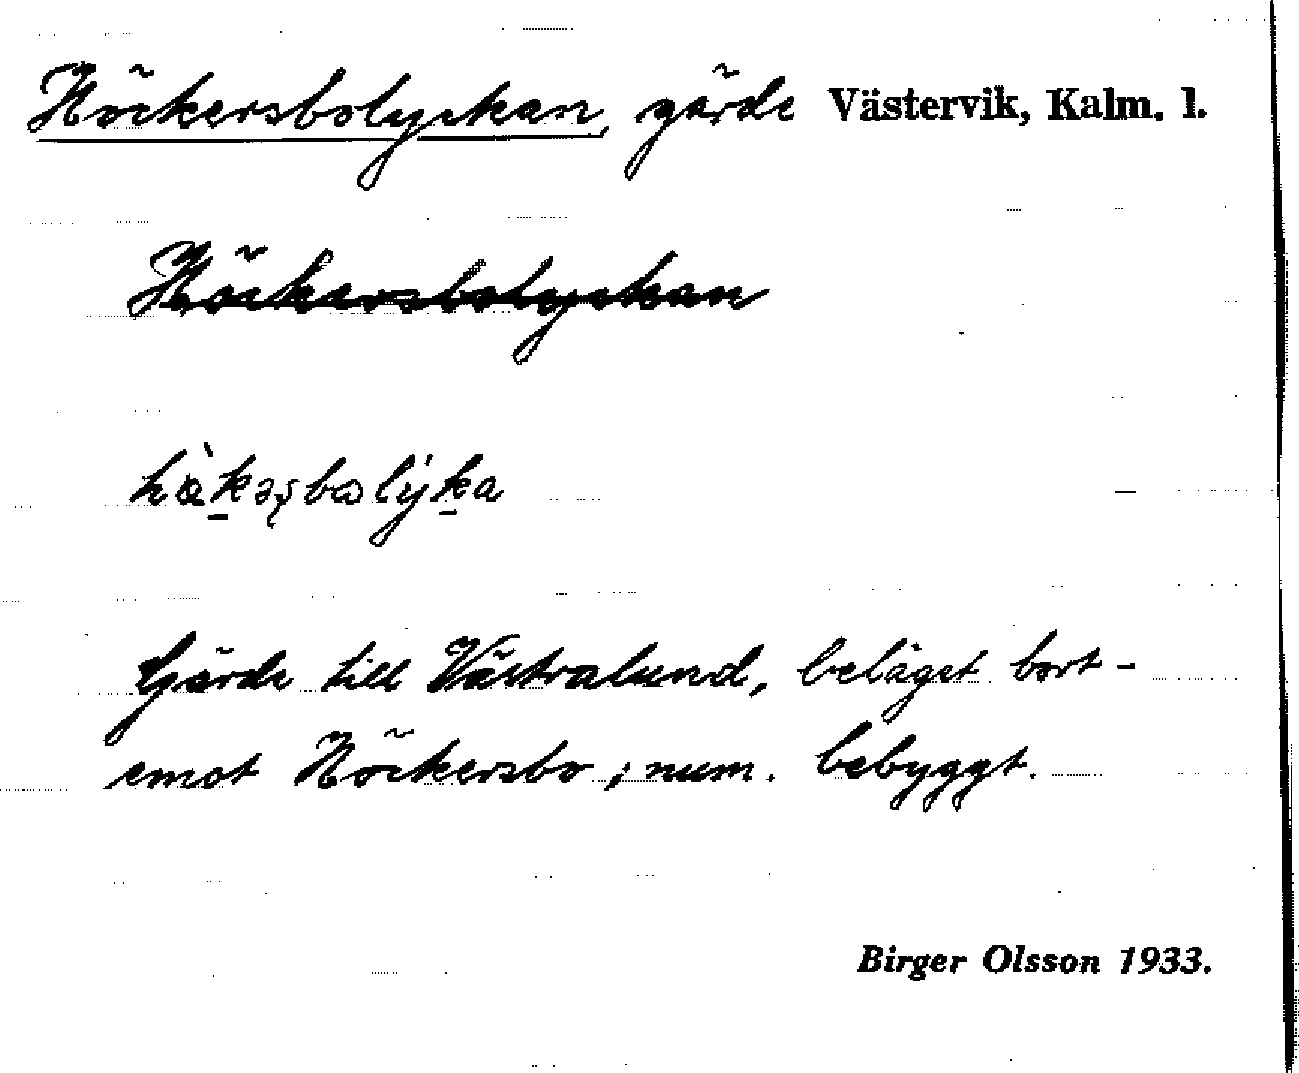 Höckersbolyckan, gärde Västervik, Kalm. l.
Höckersbolyckan
Gärde till Västralund, beläget bort-
emot Höckersbo; num. bebyggt.
Birger Olsson 1933.